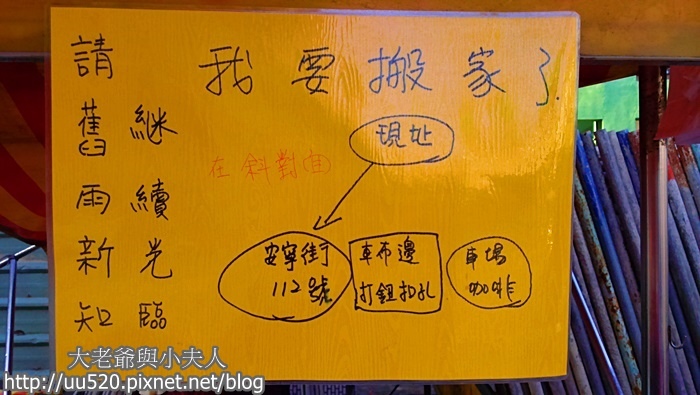 我要搬家了.
請舊雨新知
繼續光臨
現址
在斜對面
安寧街
112號
車布邊
打鈕扣孔
車場
咖啡
大老爺與小夫人
http://uu520.pixnet.net/blog